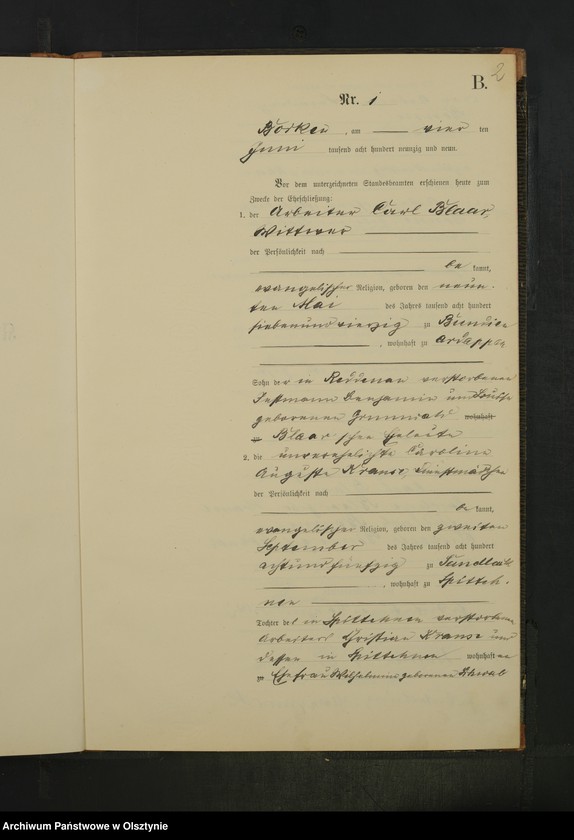 B. 2
Nr. 1
Borken, am vier ten
Juni tausend acht hundert neunzig und neun.
Vor dem unterzeichneten Standesbeamten erschienen heute zum
Zwecke der Eheschließung:
1. der Arbeiter Carl Blaar,
Wittwer
der Persönlichkeit nach
be kannt,
evangelischer Religion, geboren den neun-
ten Mai des Jahres tausend acht hundert
siebenundvierzig zu
, wohnhaft zu
Sohn der in Reddenau verstorbenen
Instmann Benjamin und Louise
geborenen wohnhaft
zu Blaar'schen Eheleute
2. die unverehelichte Caroline
Auguste Krause, Dienstmädchen
der Persönlichkeit nach
be kannt,
evangelischer Religion, geboren den zweiten
September des Jahres tausend acht hundert
achtundfünfzig zu
, wohnhaft zu Spitteh-
nen
Tochter des in Spittehnen verstorbenen
Arbeiters Christian Krause und
dessen in Spittehnen wohnhaften
zu Ehefrau Wilhelmine geborenen
Archiwum Państwowe w Olsztynie